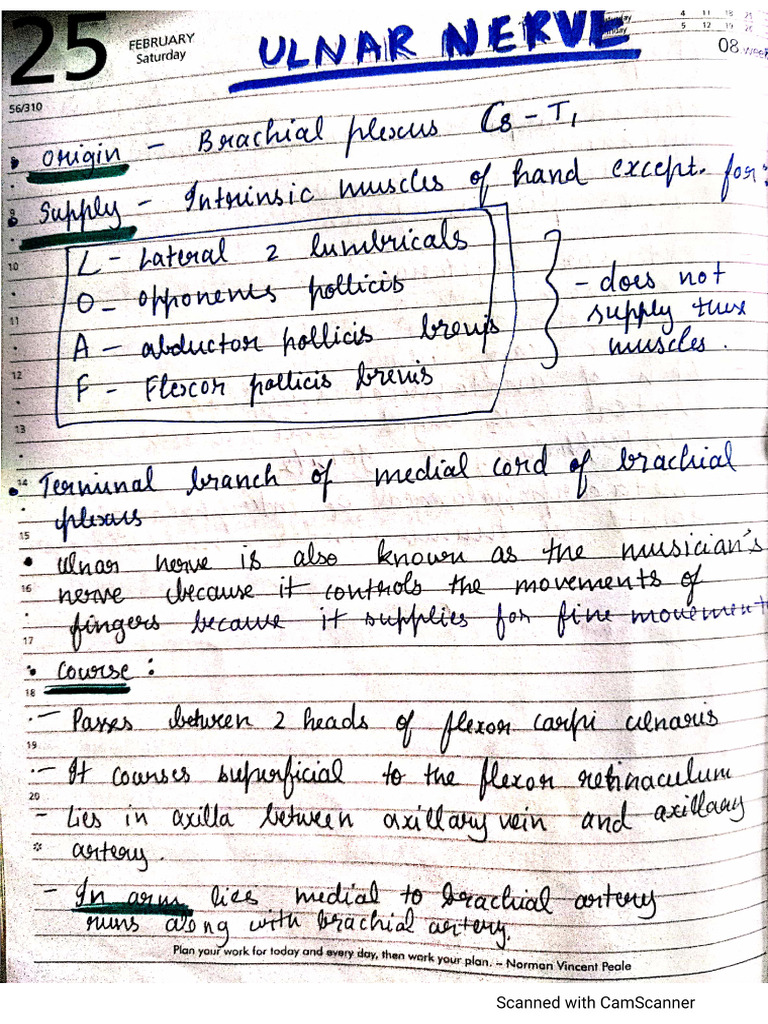 25 FEBRUARY
Saturday
ULNAR NERVE
4 11 18 25
5 12 19 26
08 week
56/310
• Origin - Brachial plexus C8 - T1
• Supply - Intrinsic muscles of hand except. for:
L - Lateral 2 lumbricals
O - Opponents pollicis
A - abductor pollicis brevis
F - Flexor pollicis brevis
} - does not
supply these
muscles.
10
11
12
13
• Terminal branch of medial cord of brachial
14
plexus
15
• Ulnar nerve is also known as the musician's
16
nerve because it controls the movements of
fingers because it supplies for fine movement
17
• Course :
18
- Passes between 2 heads of flexor carpi ulnaris
19
- It courses superficial to the flexor retinaculum
20
- Lies in axilla between axillary vein and axillary
* artery.
- In arm lies medial to brachial artery
runs along with brachial artery.
Plan your work for today and every day, then work your plan. – Norman Vincent Peale
Scanned with CamScanner